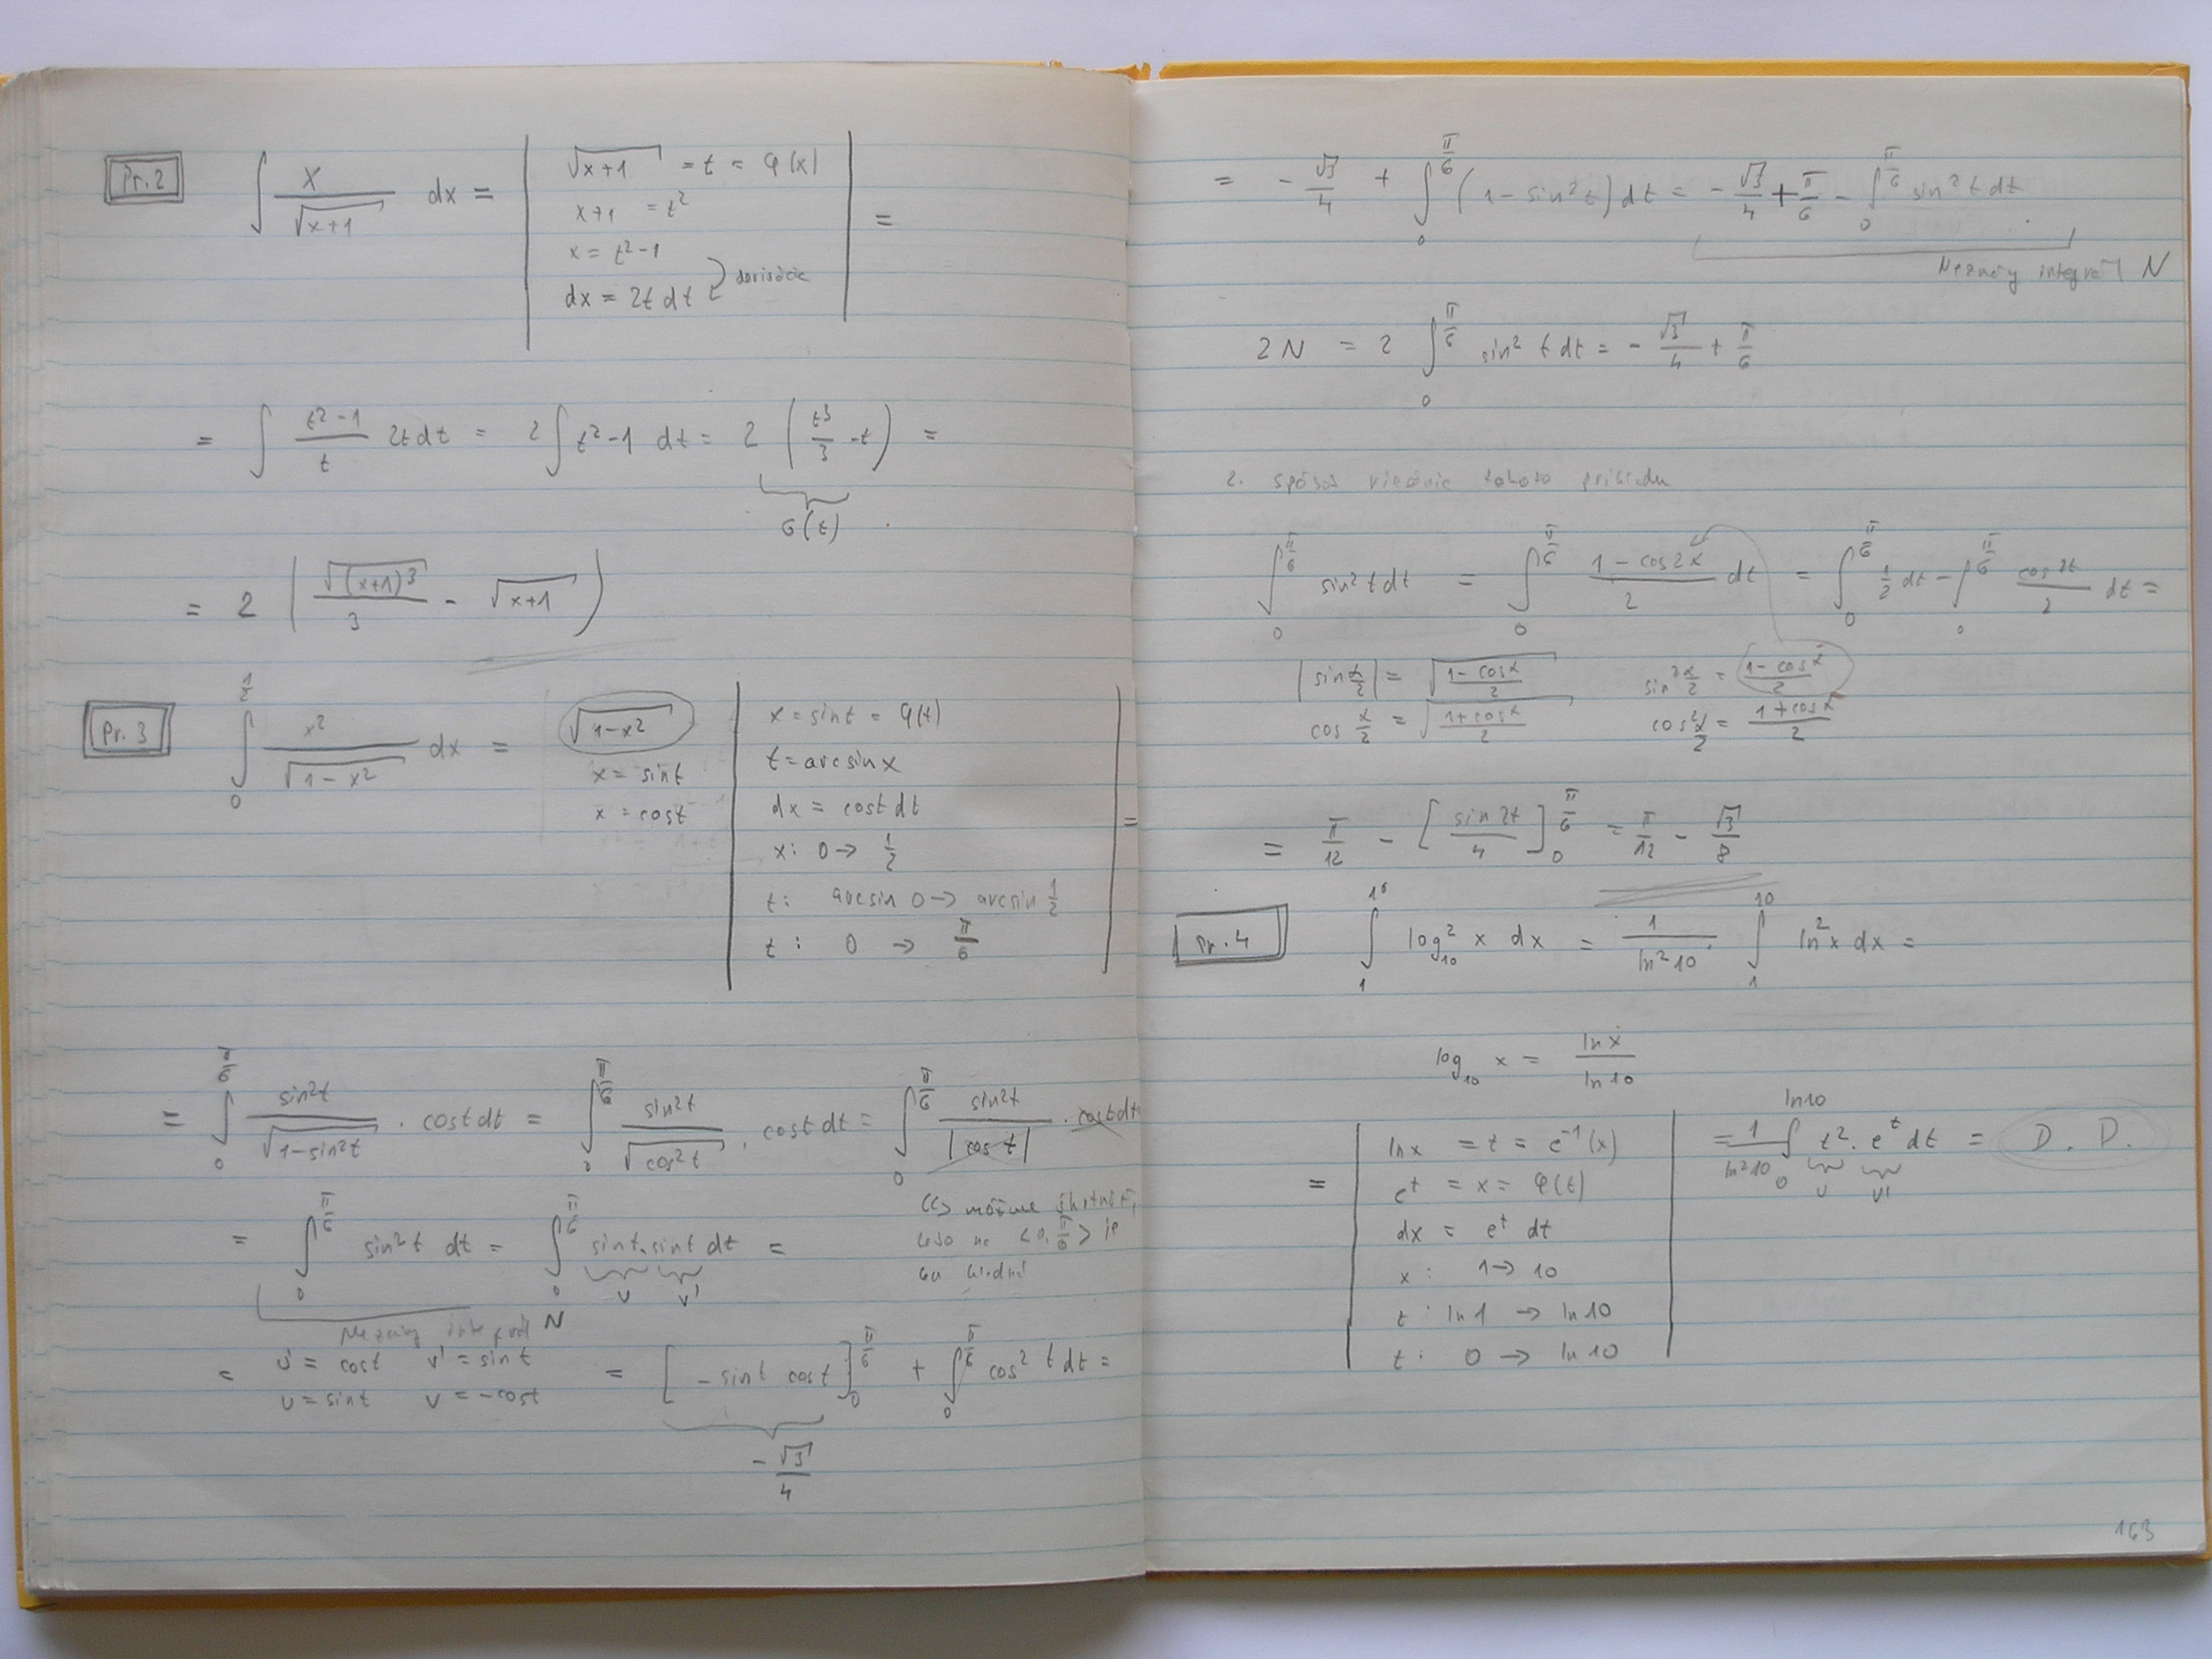 Pr. 2 ∫ x/√(x+1) dx = | √(x+1) = t = φ(x)
x+1 = t²
x = t²-1
dx = 2t dt | =
= ∫ (t²-1)/t 2t dt = 2 ∫ t²-1 dt = 2 (t³/3 - t) =
G(t)
= 2 (√(x+1)³/3 - √(x+1))
Pr. 3 ∫₀^(1/2) x²/√(1-x²) dx = √(1-x²)
x = sint
x = cost
| x = sint = φ(t)
t = arcsinx
dx = cost dt
x: 0 → 1/2
t: arcsin 0 → arcsin 1/2
t: 0 → π/6 | =
= ∫₀^(π/6) sin²t/√(1-sin²t) . cost dt = ∫₀^(π/6) sin²t/√(cos²t) . cost dt = ∫₀^(π/6) sin²t/|cos t| . cost dt
môžme
na <0, π/6> je
= ∫₀^(π/6) sin²t dt = ∫₀^(π/6) sint.sint dt =
u v'
Neznámy integrál N
= u' = cost v' = sint
u = sint v = -cost
= [-sint cost]₀^(π/6) + ∫₀^(π/6) cos² t dt =
-√3/4
= -√3/4 + ∫₀^(π/6) (1-sin²t) dt = -√3/4 + π/6 - ∫₀^(π/6) sin²t dt
Neznámy integrál N
2N = 2 ∫₀^(π/6) sin² t dt = -√3/4 + π/6
2. spôsob riešenia tohoto príkladu
∫₀^(π/6) sin²t dt = ∫₀^(π/6) (1-cos2x)/2 dt = ∫₀^(π/6) 1/2 dt - ∫₀^(π/6) cos2t/2 dt =
|sin x/2| = √((1-cosx)/2) sin² x/2 = (1-cosx)/2
cos x/2 = √((1+cosx)/2) cos² x/2 = (1+cosx)/2
= π/12 - [sin2t/4]₀^(π/6) = π/12 - √3/8
Pr. 4 ∫₁^10 log₁₀² x dx = 1/ln²10 ∫₁^10 ln²x dx =
log₁₀ x = lnx/ln10
= | lnx = t = φ⁻¹(x)
e^t = x = φ(t)
dx = e^t dt
x: 1 → 10
t: ln1 → ln10
t: 0 → ln10 |
= 1/ln²10 ∫₀^ln10 t².e^t dt = D. D.
u v'
163